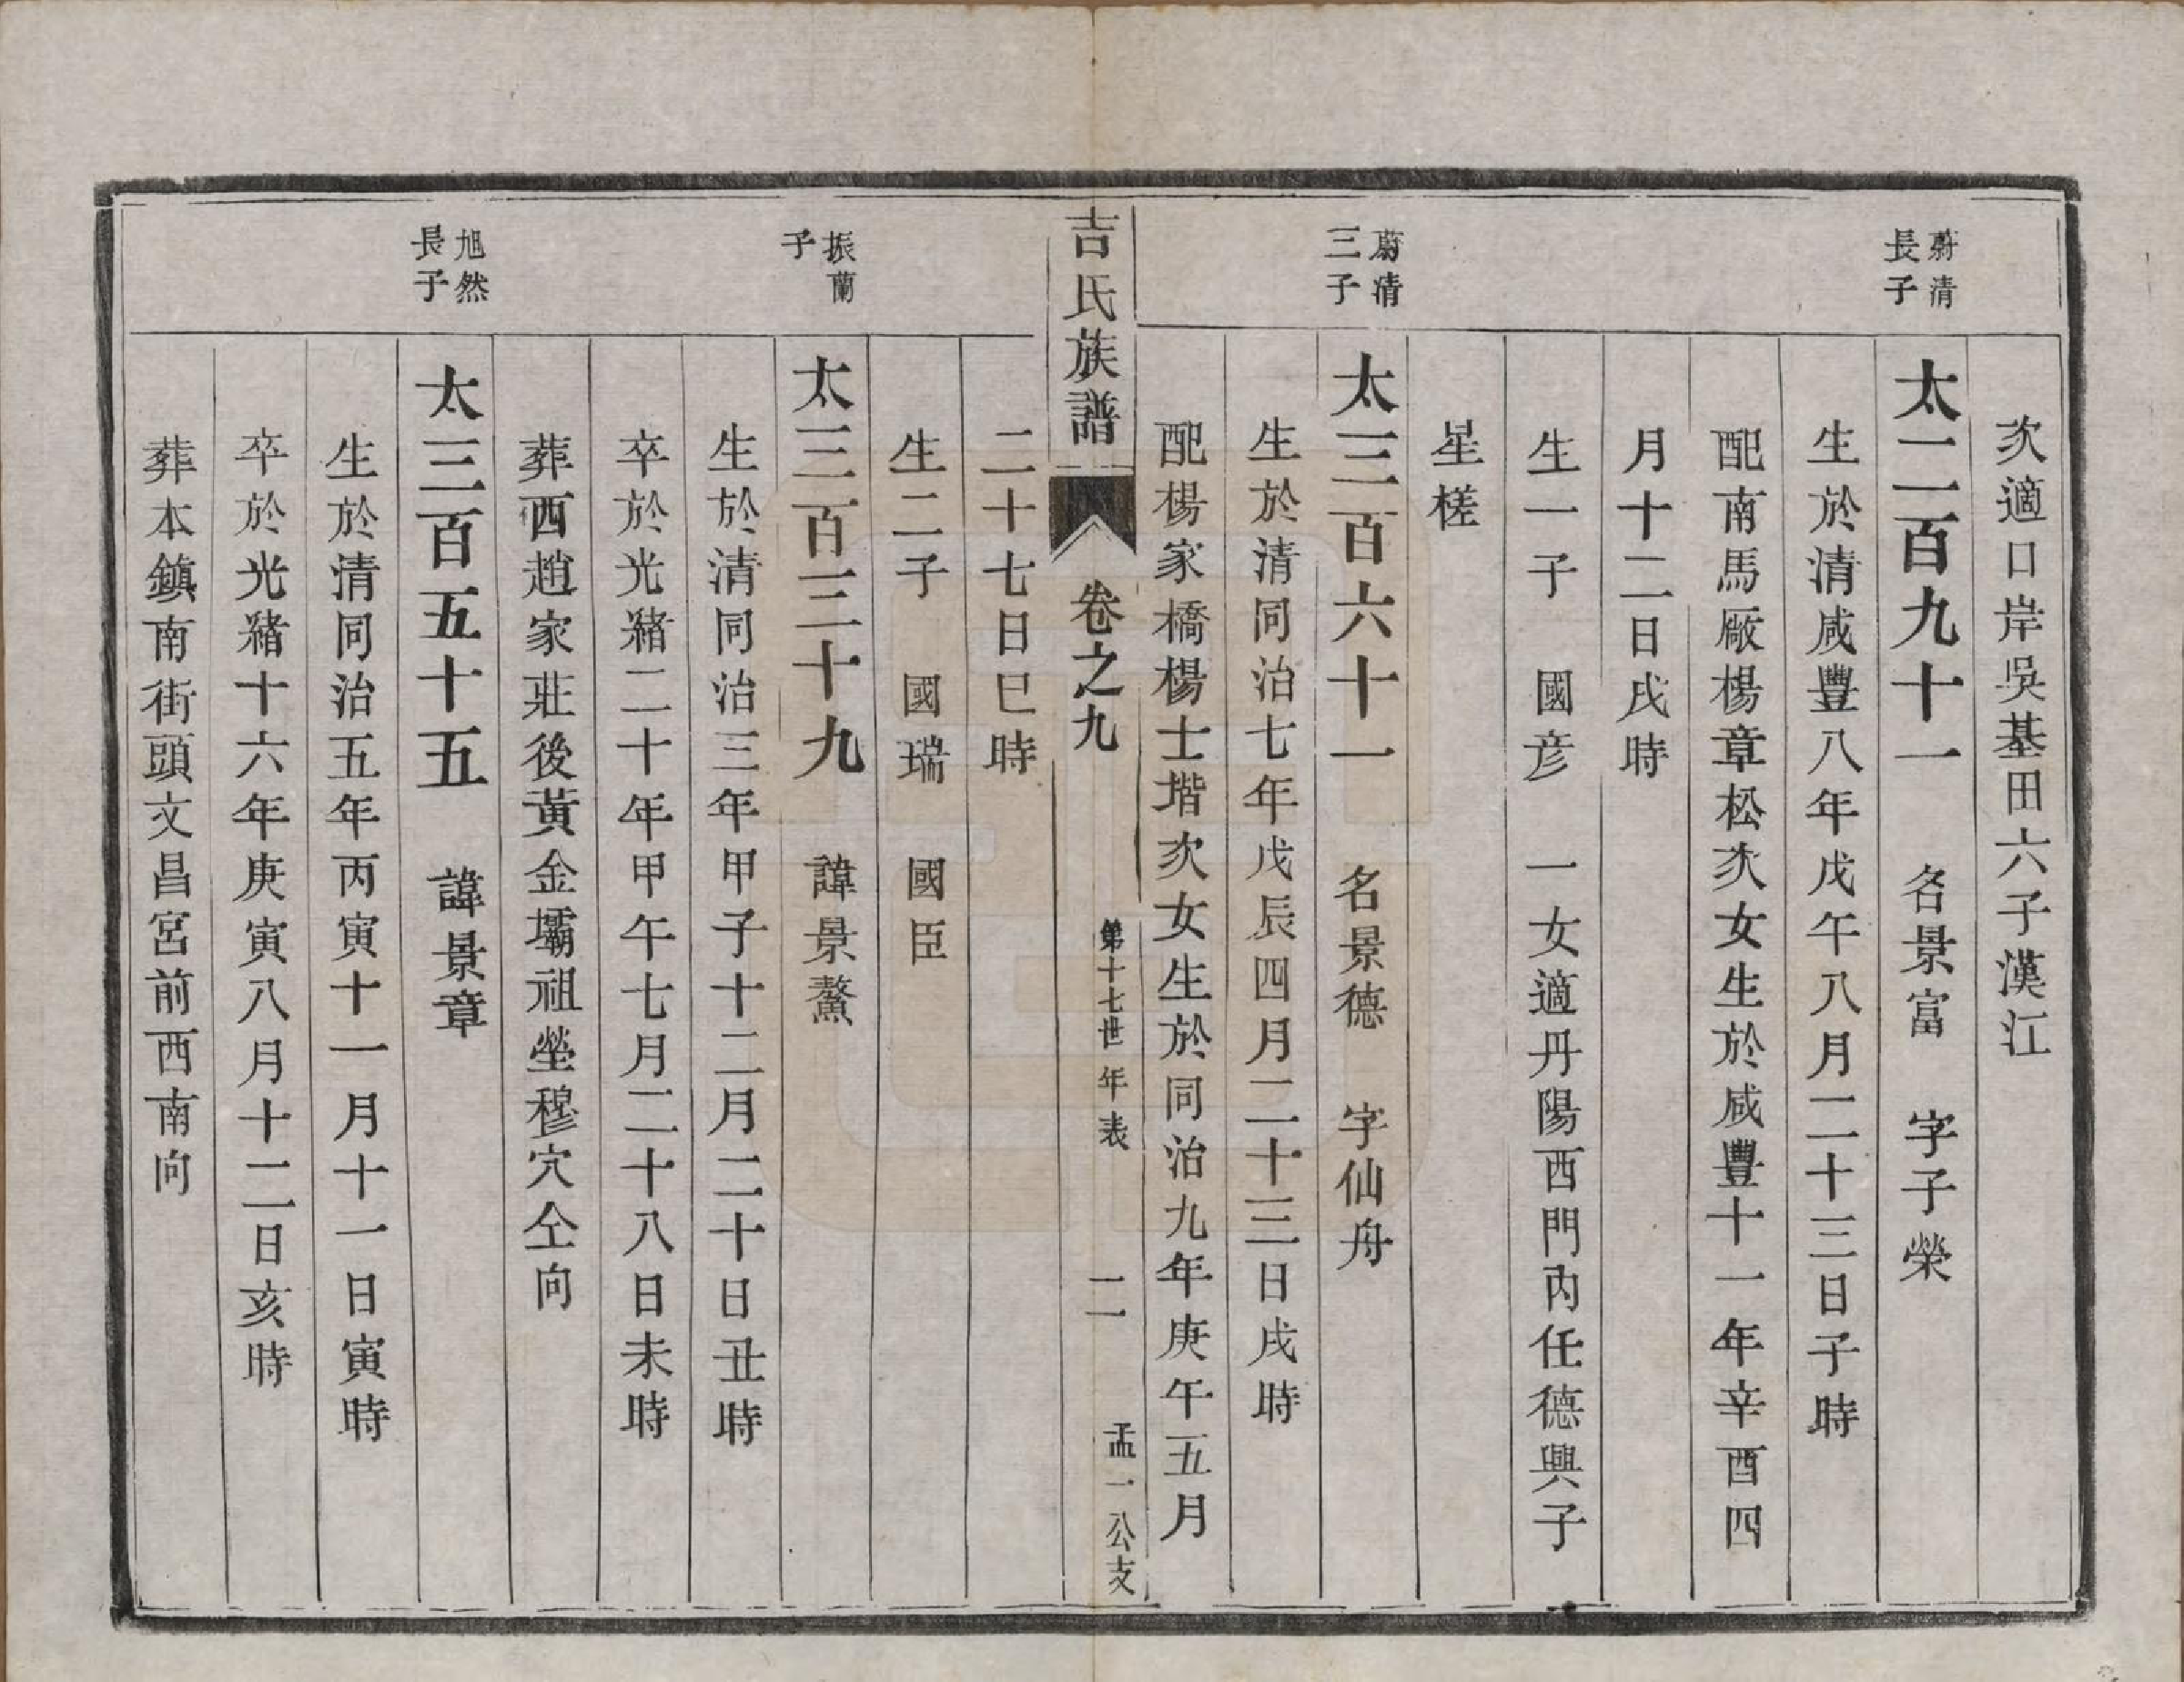 次適口岸吳基田六子漢江
蔚清
長子
太二百九十一 名景富 字子榮
生於清咸豐八年戊午八月二十三日子時
配南馬厰楊章松次女生於咸豐十一年辛酉四
月十二日戌時
生一子 國彦 一女適丹陽西門內任德興子
星槎
蔚清
三子
太三百六十一 名景德 字仙舟
生於清同治七年戊辰四月二十三日戌時
配楊家橋楊士堦次女生於同治九年庚午五月
吉氏族譜 卷之九 第十七世年表 二 孟一公支
二十七日巳時
生二子 國瑞 國臣
振蘭
子
太三百三十九 諱景鰲
生於清同治三年甲子十二月二十日丑時
卒於光緒二十年甲午七月二十八日未時
葬西趙家莊後黃金壩祖塋穆穴仝向
旭然
長子
太三百五十五 諱景章
生於清同治五年丙寅十一月十一日寅時
卒於光緒十六年庚寅八月十二日亥時
葬本鎮南街頭文昌宮前西南向